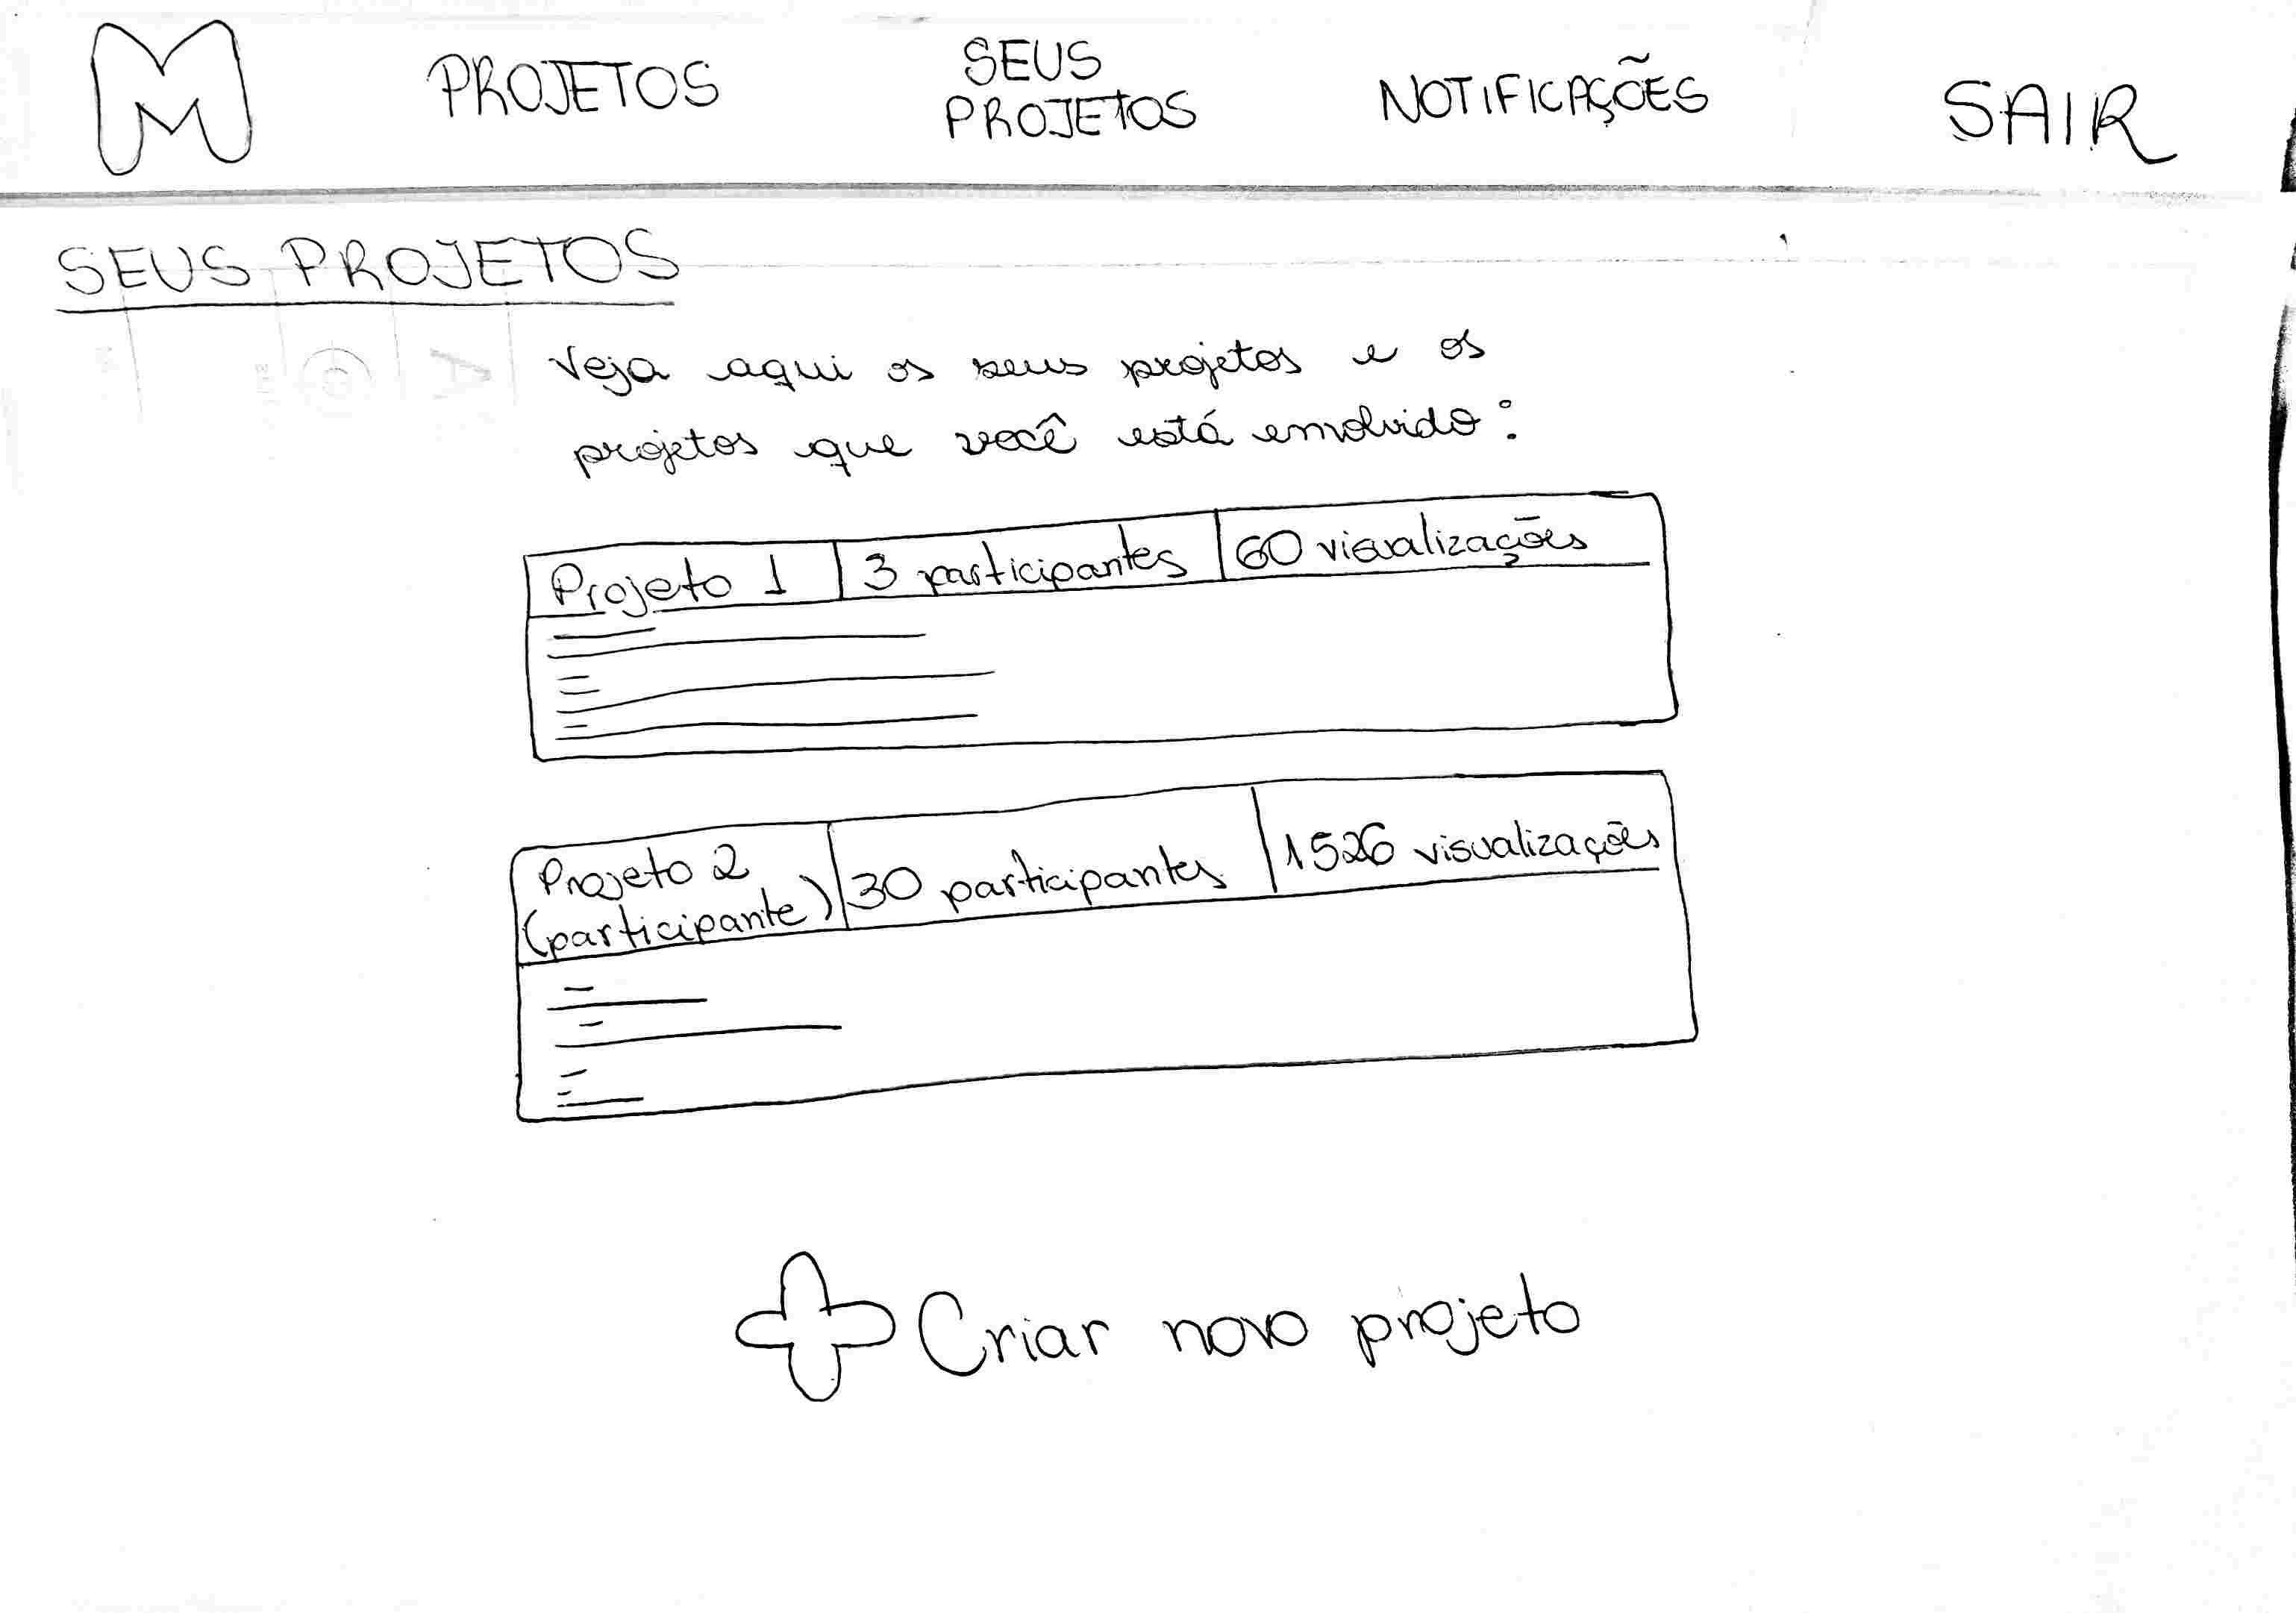 M
PROJETOS
SEUS
PROJETOS
NOTIFICAÇÕES
SAIR
SEUS PROJETOS
Veja aqui os seus projetos e os
projetos que você está envolvido:
Projeto 1
3 participantes
60 visualizações
Projeto 2
(participante)
30 participantes
1526 visualizações
Criar novo projeto